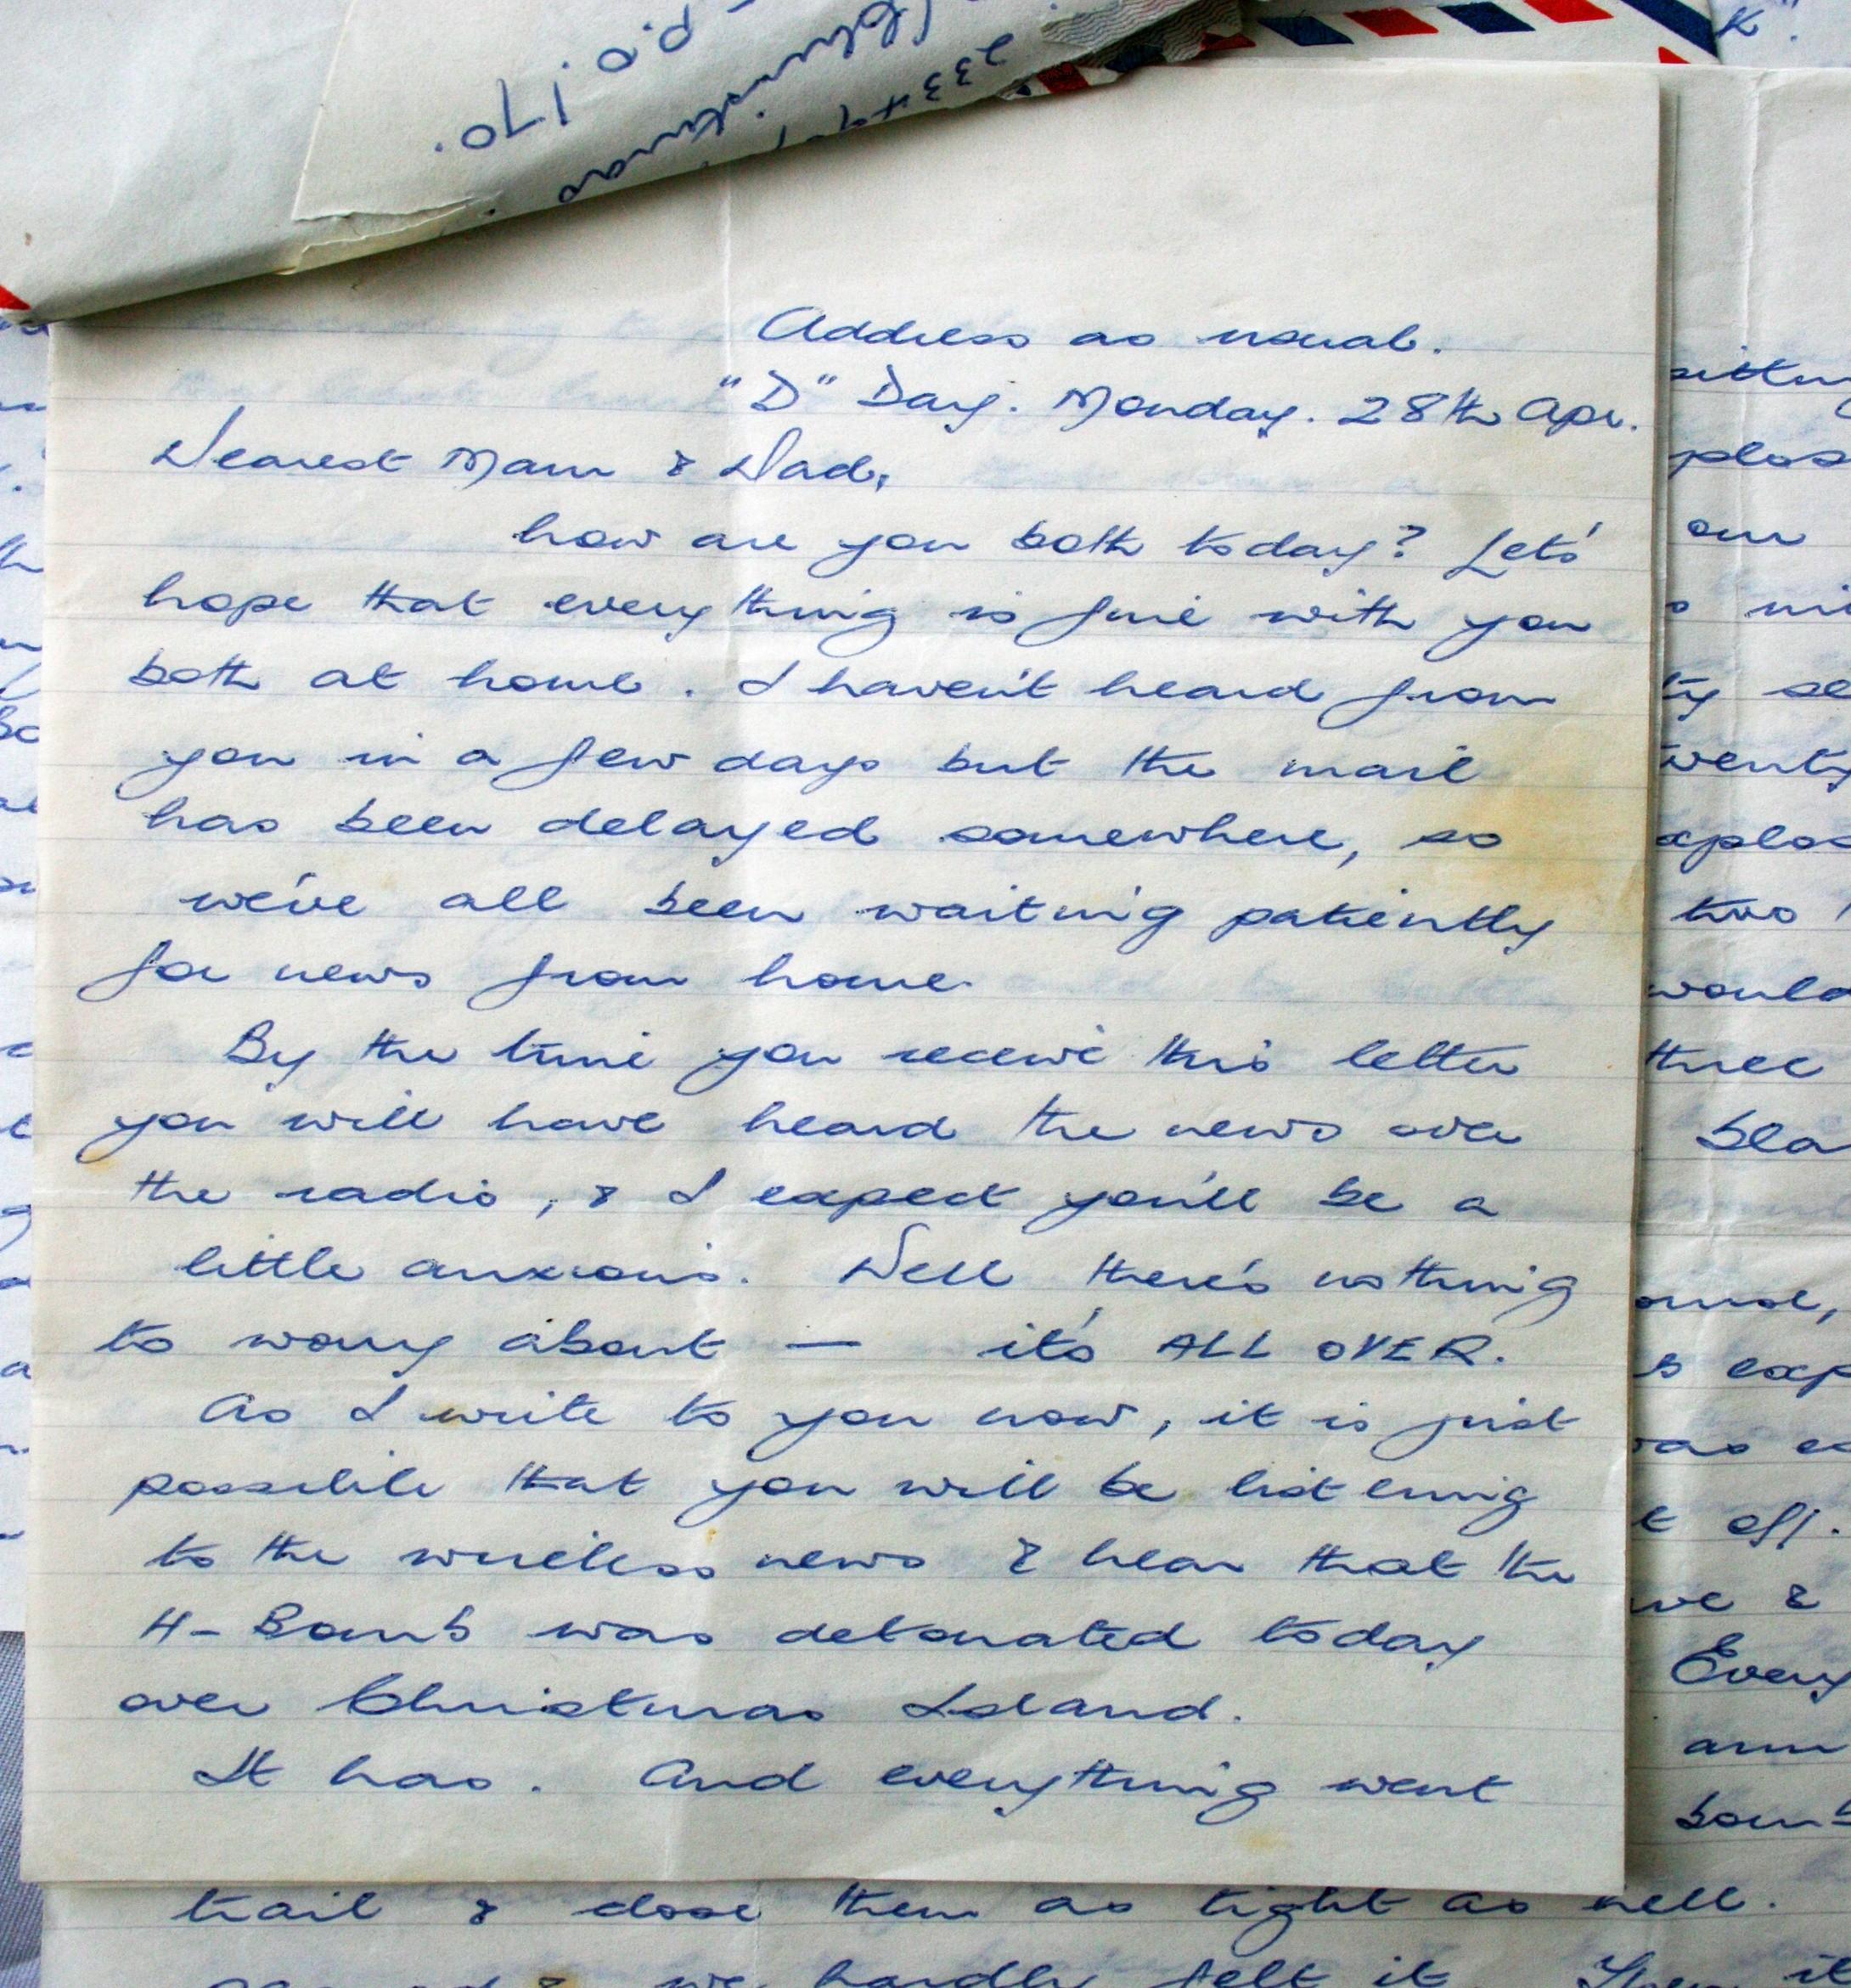 Address as usual.
"D" Day. Monday. 28th Apr.
Dearest Mam & Dad,
how are you both today? Let's
hope that everything is fine with you
both at home. I haven't heard from
you in a few days but the mail
has been delayed somewhere, so
we've all been waiting patiently
for news from home.
By the time you receive this letter
you will have heard the news over
the radio, & I expect you'll be a
little anxious. Well there's nothing
to worry about — it's ALL OVER.
As I write to you now, it is just
possible that you will be listening
to the wireless news & hear that the
H-Bomb was detonated today
over Christmas Island.
It has. And everything went
trail & close them as tight as hell.
we hardly felt it.
our
two
would
three
Every